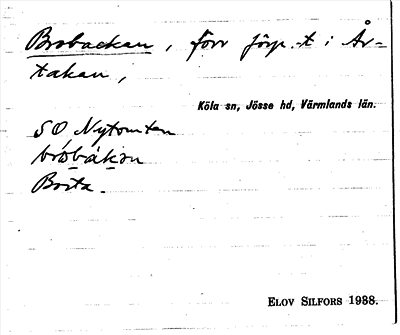 Brobackan, förr förp. t i År-
takan,
Köla sn, Jösse hd, Värmlands län.
SO Nytomten
bróbàkɔn
Borta.
ELOV SILFORS 1938.